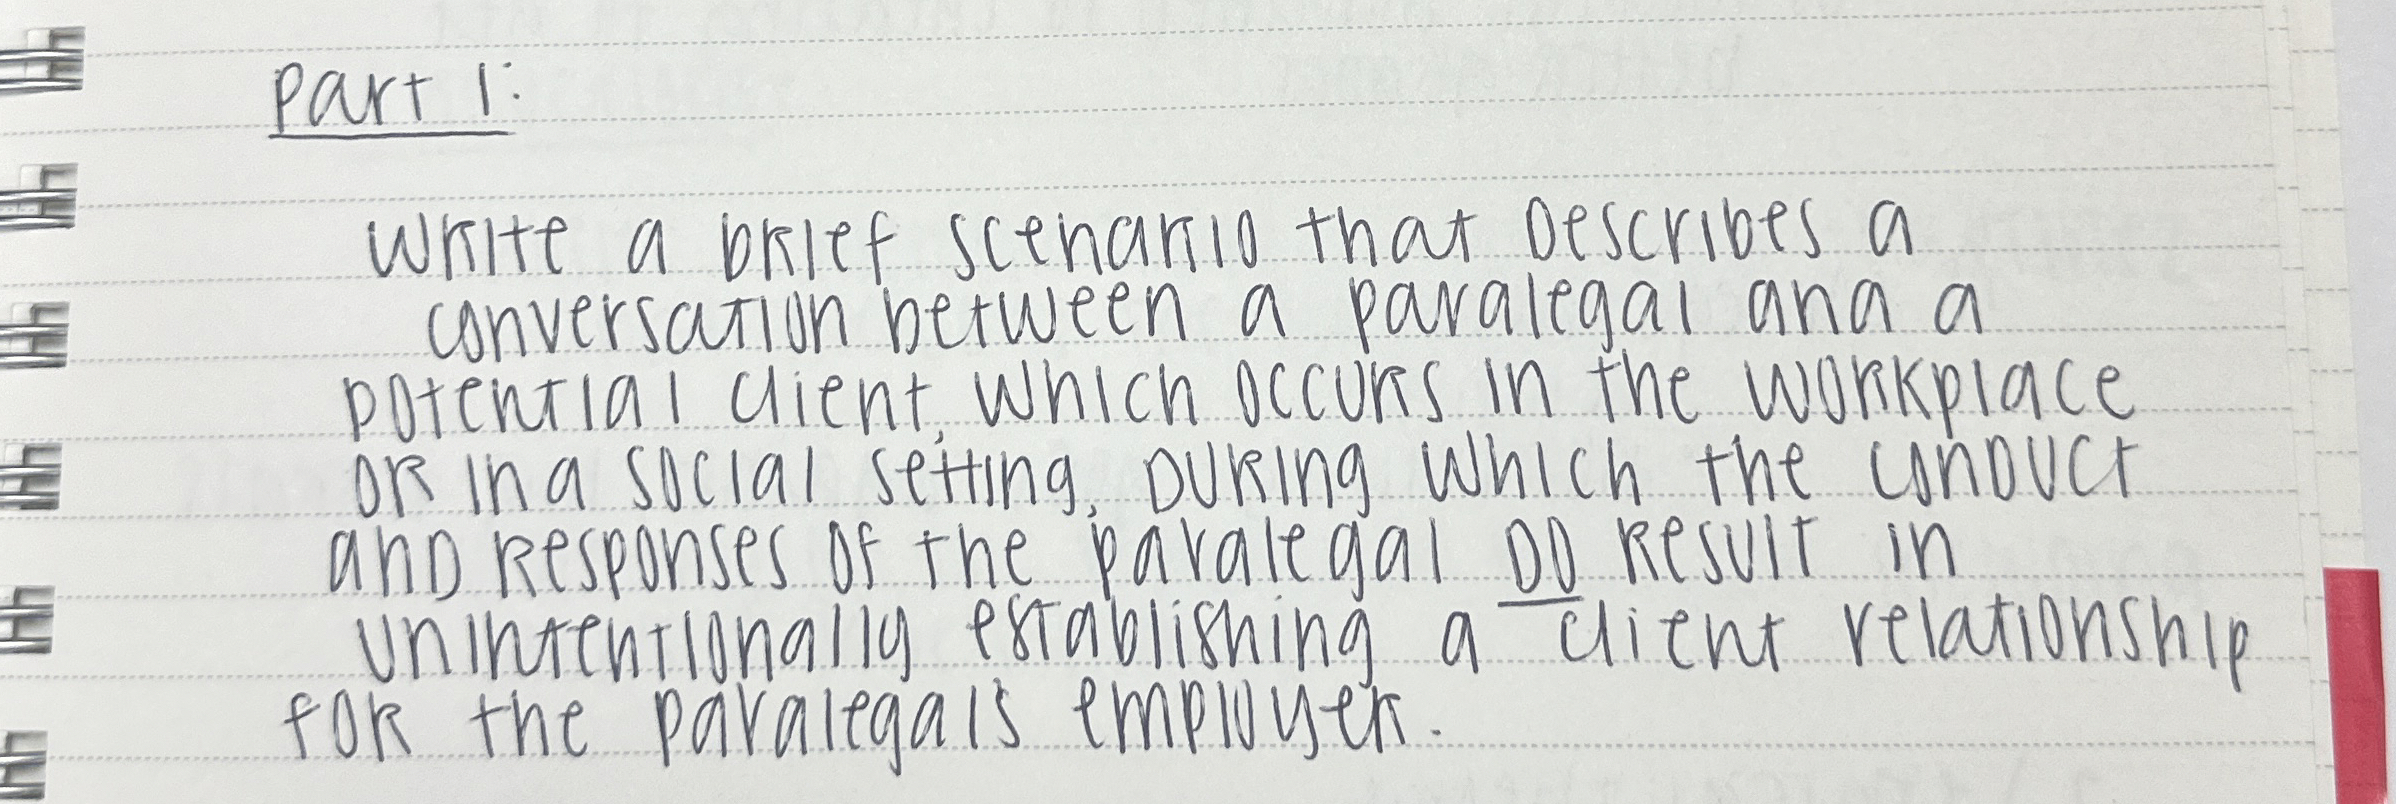 Part 1:
Write a brief scenario that describes a
conversation between a paralegal and a
potential client, which occurs in the workplace
or in a social setting, during which the conduct
and responses of the paralegal DO result in
unintentionally establishing a client relationship
for the paralegals employer.